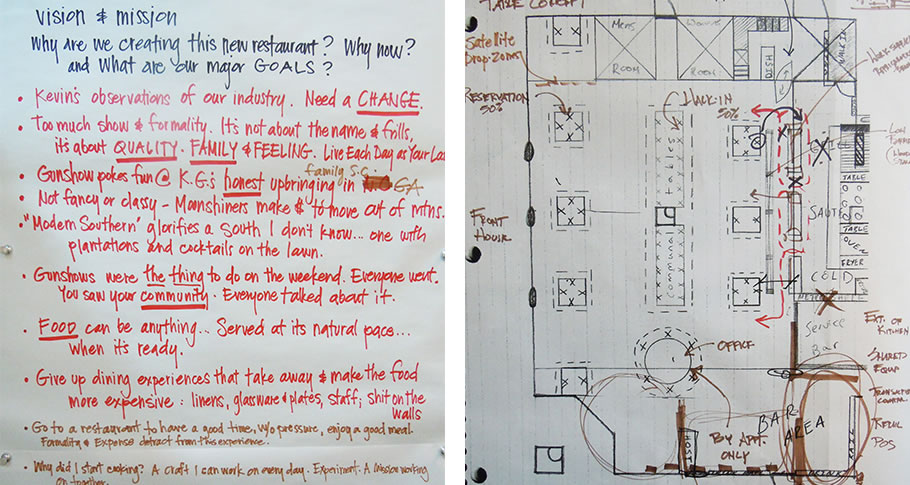 Vision & mission
Why are we creating this new restaurant? Why now?
and What are our major GOALS?
• Kevin's observations of our industry. Need a CHANGE.
• Too much show & formality. It's not about the name & frills,
it's about QUALITY. FAMILY & FEELING. Live Each Day as Your Las
family S.C.
• Gunshow pokes fun @ K.G.'s honest upbringing in GA
• Not fancy or classy - Moonshiners make $ to move out of mtns.
• "Modern Southern" glorifies a South I don't know... one with
plantations and cocktails on the lawn.
• Gunshows were the thing to do on the weekend. Everyone went.
You saw your community. Everyone talked about it.
• FOOD can be anything... Served at its natural pace...
when it's ready.
• Give up dining experiences that take away & make the food
more expensive: linens, glassware & plates, staff, shit on the
walls
• Go to a restaurant to have a good time, w/o pressure, enjoy a good meal.
Formality & Expense detract from this experience.
• Why did I start cooking? A craft I can work on every day. Experiment. A mission working
on together.
TABLE CONCEPT
Satellite
Drop-Zones
MENS
ROOM
ROOM
DISH
WALK IN
RESERVATION
50%
WALK-IN
50%
communal tables
FRONT
HOUSE
TABLE
SAUTE
TABLE
OVEN
FRYER
COLD
Service
Bar
EXT. OF
KITCHEN
SHARED
EQUIP
OFFICE
BY APPT.
ONLY
HOST
BAR
AREA
POS